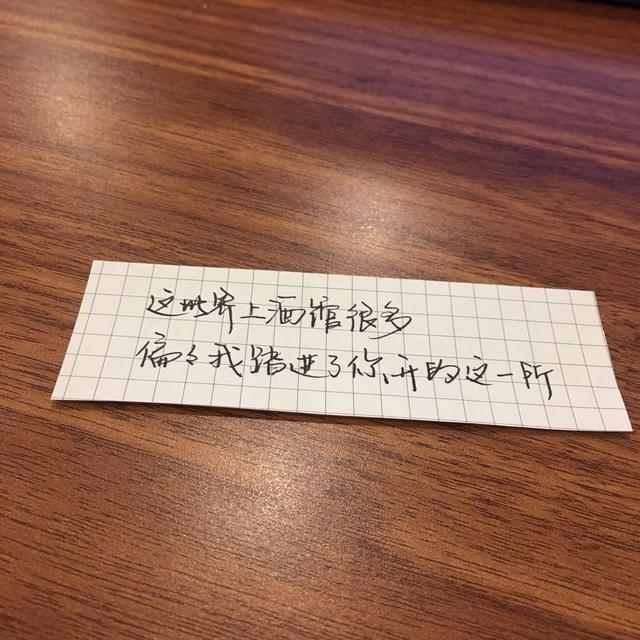 这世界上酒馆很多
偏々我踏进了你开的这一所